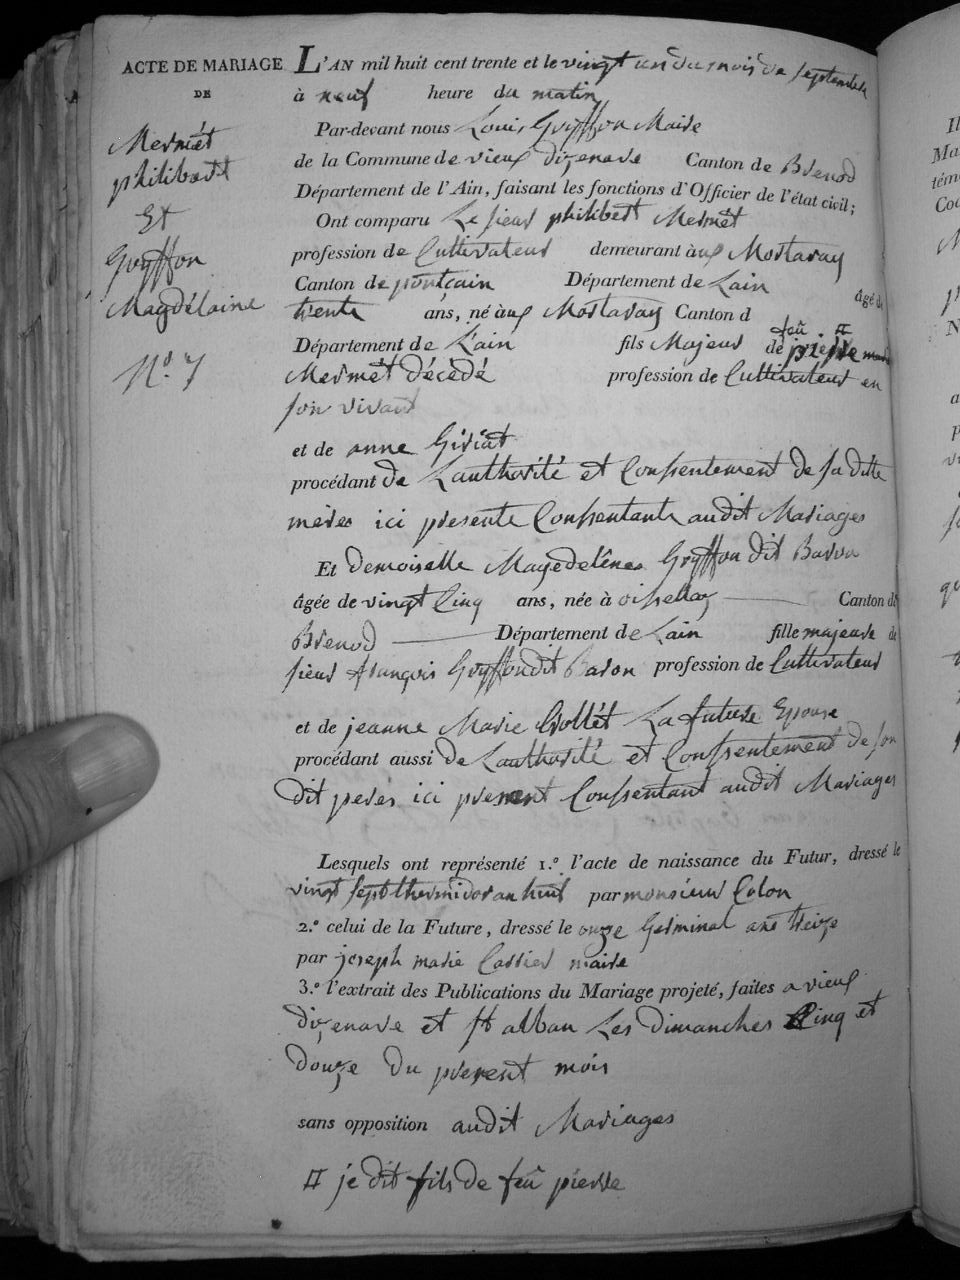 ACTE DE MARIAGE
DE
Mermét
philibert
Et
Gryffon
Magdélaine
N.° 7
L'AN mil huit cent trente et le vingt un du mois de septembre
à neuf heure du matin
Par-devant nous Louis Gryffon Maire
de la Commune de vieux dizenave Canton de Brenod
Département de l'Ain, faisant les fonctions d'Officier de l'état civil;
Ont comparu Le sieur philibert Mermét
profession de Cultivateur demeurant aux Mortaray
Canton de pontçain Département de Lain âgé de
trente ans, né aux Mortaray Canton d
Département de L'ain fils Majeur de feû pierre
Mermét décédé profession de Cultivateur en
son vivant
et de anne Giriat
procédant de Lauthorité et Conssentement de sa dite
mères ici presente Conssentante audit Mariages
Et demoiselle Magedelênes Gryffon dit Baron
âgée de vingt Cinq ans, née à oissellaz Canton de
Brenod Département de Lain fille majeure de
sieur françois Gryffon dit Baron profession de Cultivateur
et de jeanne Marie Gollét La future Epouse
procédant aussi de Lauthorité et Conssentement de son
dit peres ici present Conssentant audit Mariages
Lesquels ont représenté 1.° l'acte de naissance du Futur, dressé le
vingt sept thermidor an huit par monsieur Colon
2.° celui de la Future, dressé le onze Germinal ans treize
par joseph marie Carrier maire
3.° l'extrait des Publications du Mariage projeté, faites a vieux
dizenave et st alban Les dimanches Cinq et
douze du present mois
sans opposition audit Mariages
je dit fils de feû pierre